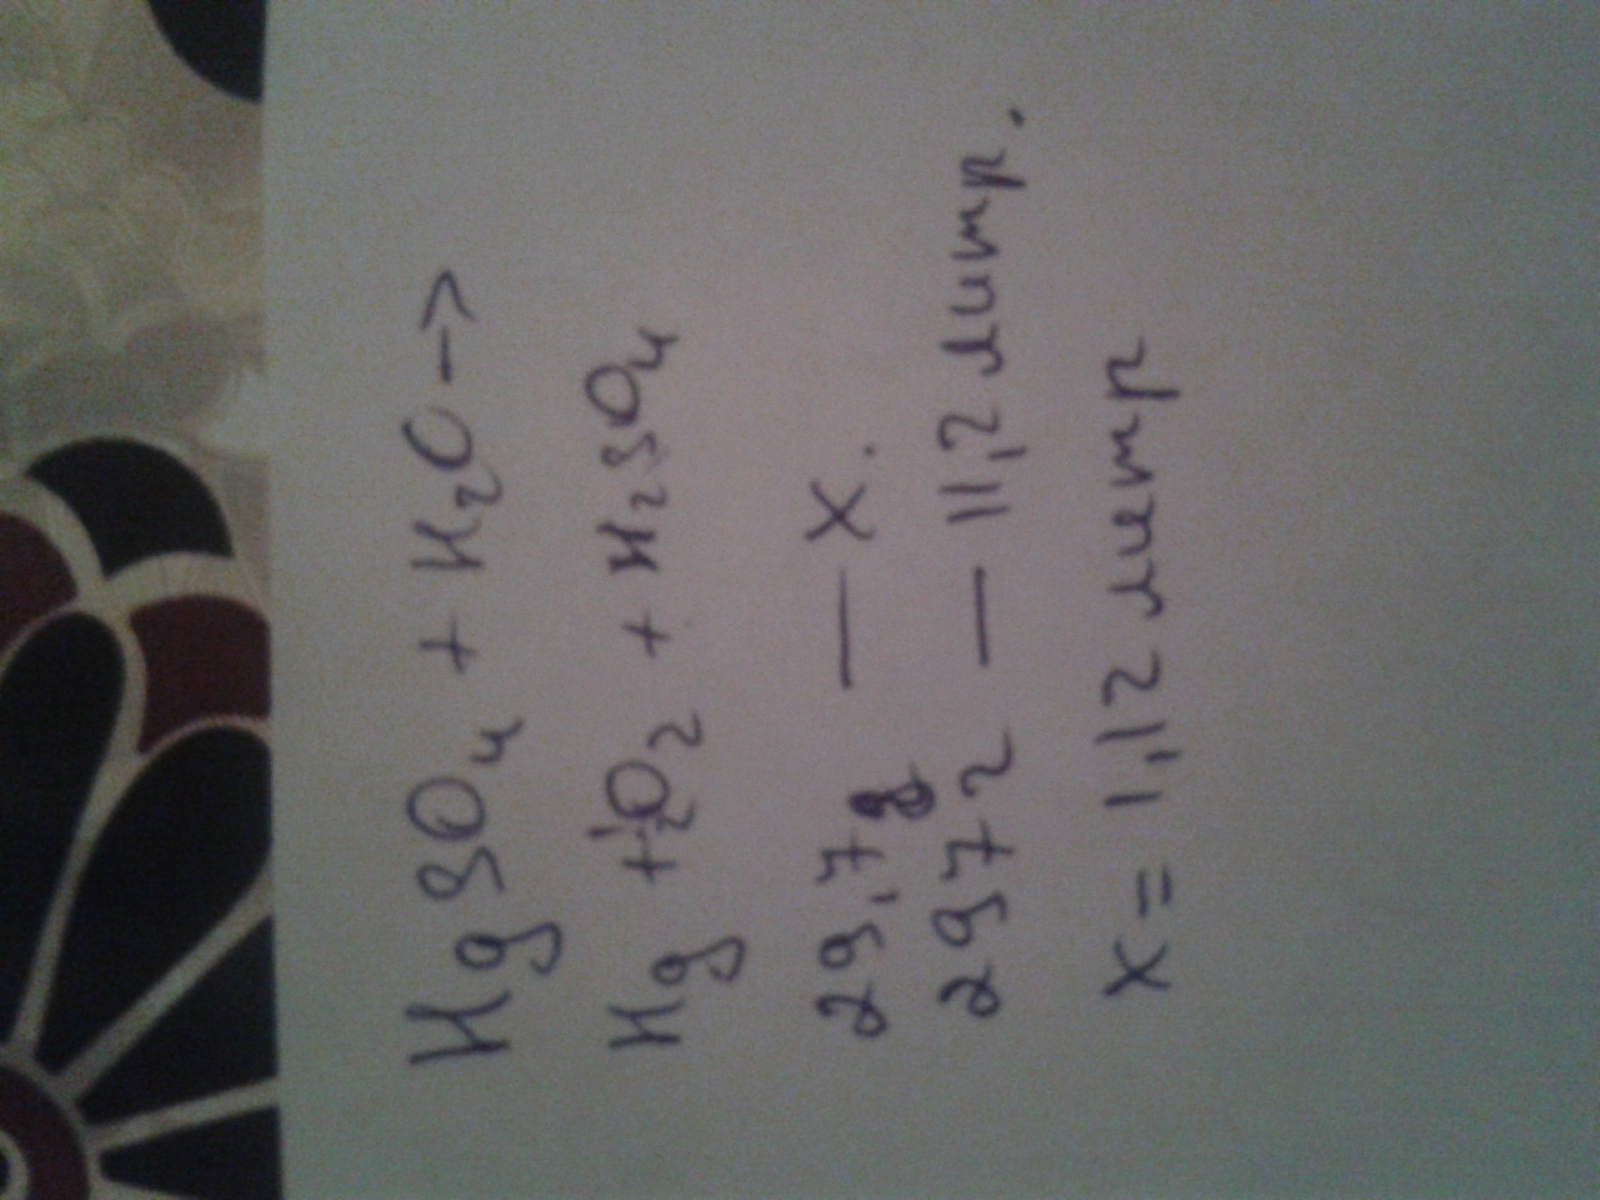 HgSO₄ + H₂O →
Hg + ½O₂ + H₂SO₄
29,7г — x.
297г — 11,2 литр.
x = 1,12 литр